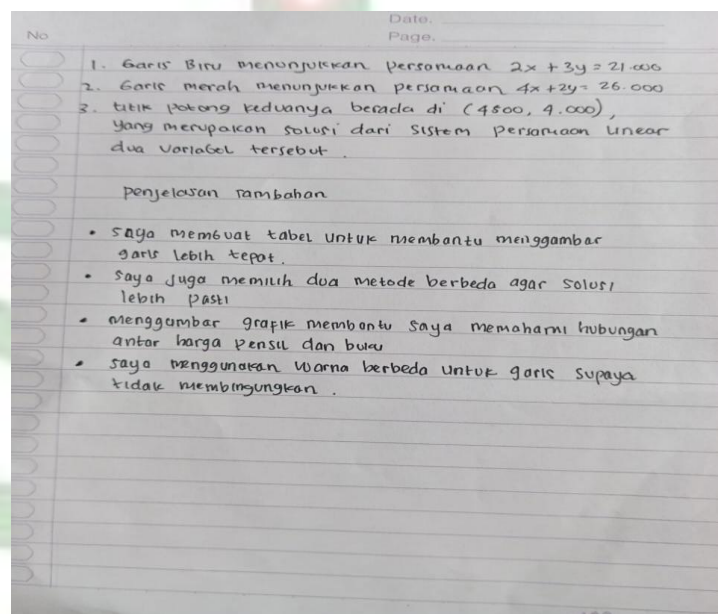 Date.
No
Page.
1. Garis Biru menunjukkan persamaan 2x + 3y = 21.000
2. Garis merah menunjukkan persamaan 4x + 2y = 26.000
3. titik potong keduanya berada di (4500, 4.000),
yang merupakan solusi dari sistem persamaan linear
dua variabel tersebut.
penjelasan Tambahan
• saya membuat tabel untuk membantu menggambar
garis lebih tepat.
• saya juga memilih dua metode berbeda agar solusi
lebih pasti
• menggambar grafik membantu saya memahami hubungan
antar harga pensil dan buku
• saya menggunakan warna berbeda untuk garis supaya
tidak membingungkan.